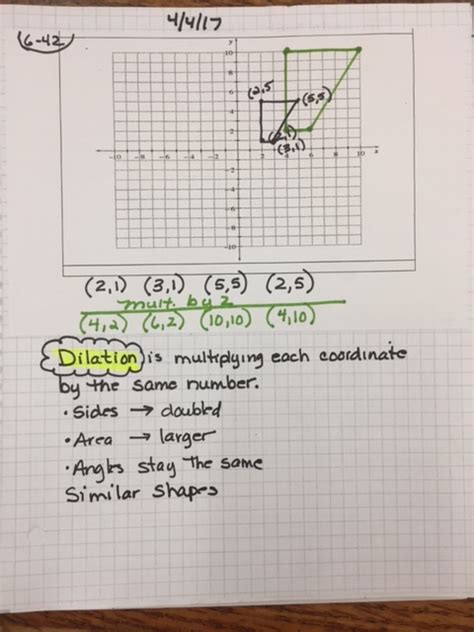 4/4/17
6-42
y
10
8
6
4
2
-10 -8 -6 -4 -2 2 4 6 8 10 x
-2
-4
-6
-8
-10
(2,5
(5,5)
(2,1)
(3,1)
(2,1) (3,1) (5,5) (2,5)
mult. by 2
(4,2) (6,2) (10,10) (4,10)
Dilation is multiplying each coordinate
by the same number.
• Sides → doubled
• Area → larger
• Angles stay the same
Similar Shapes